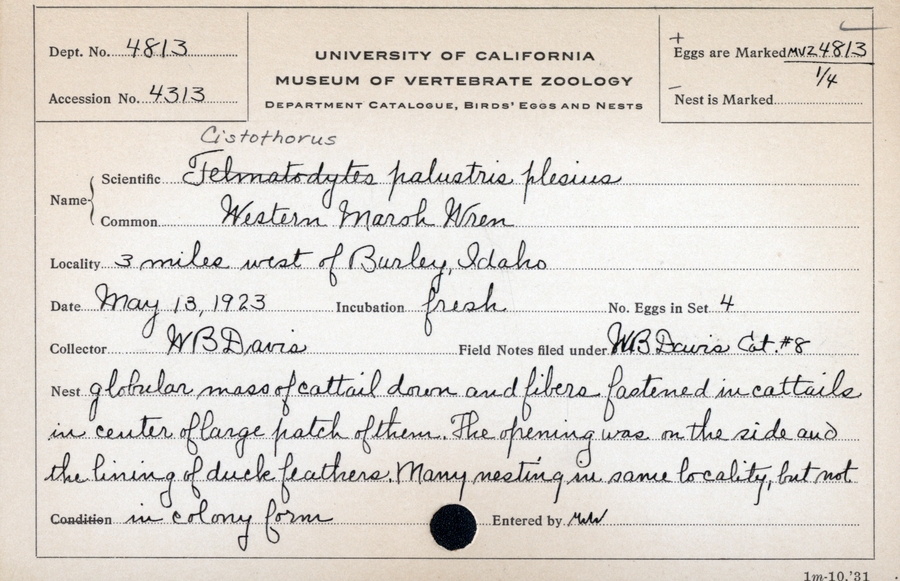 Dept. No. 4813
Accession No. 4313
UNIVERSITY OF CALIFORNIA
MUSEUM OF VERTEBRATE ZOOLOGY
DEPARTMENT CATALOGUE, BIRDS' EGGS AND NESTS
+
Eggs are Marked MVZ 4813
1/4
–
Nest is Marked
Cistothorus
Name Scientific Telmatodytes palustris plesius
Common Western Marsh Wren
Locality 3 miles west of Burley, Idaho
Date May 13, 1923 Incubation fresh No. Eggs in Set 4
Collector WB Davis Field Notes filed under WB Davis Cat. #8
Nest globular mass of cattail down and fibers fastened in cattails
in center of large patch of them. The opening was on the side and
the lining of duck feathers. Many nesting in same locality, but not
Condition in colony form Entered by
1m-10,'31